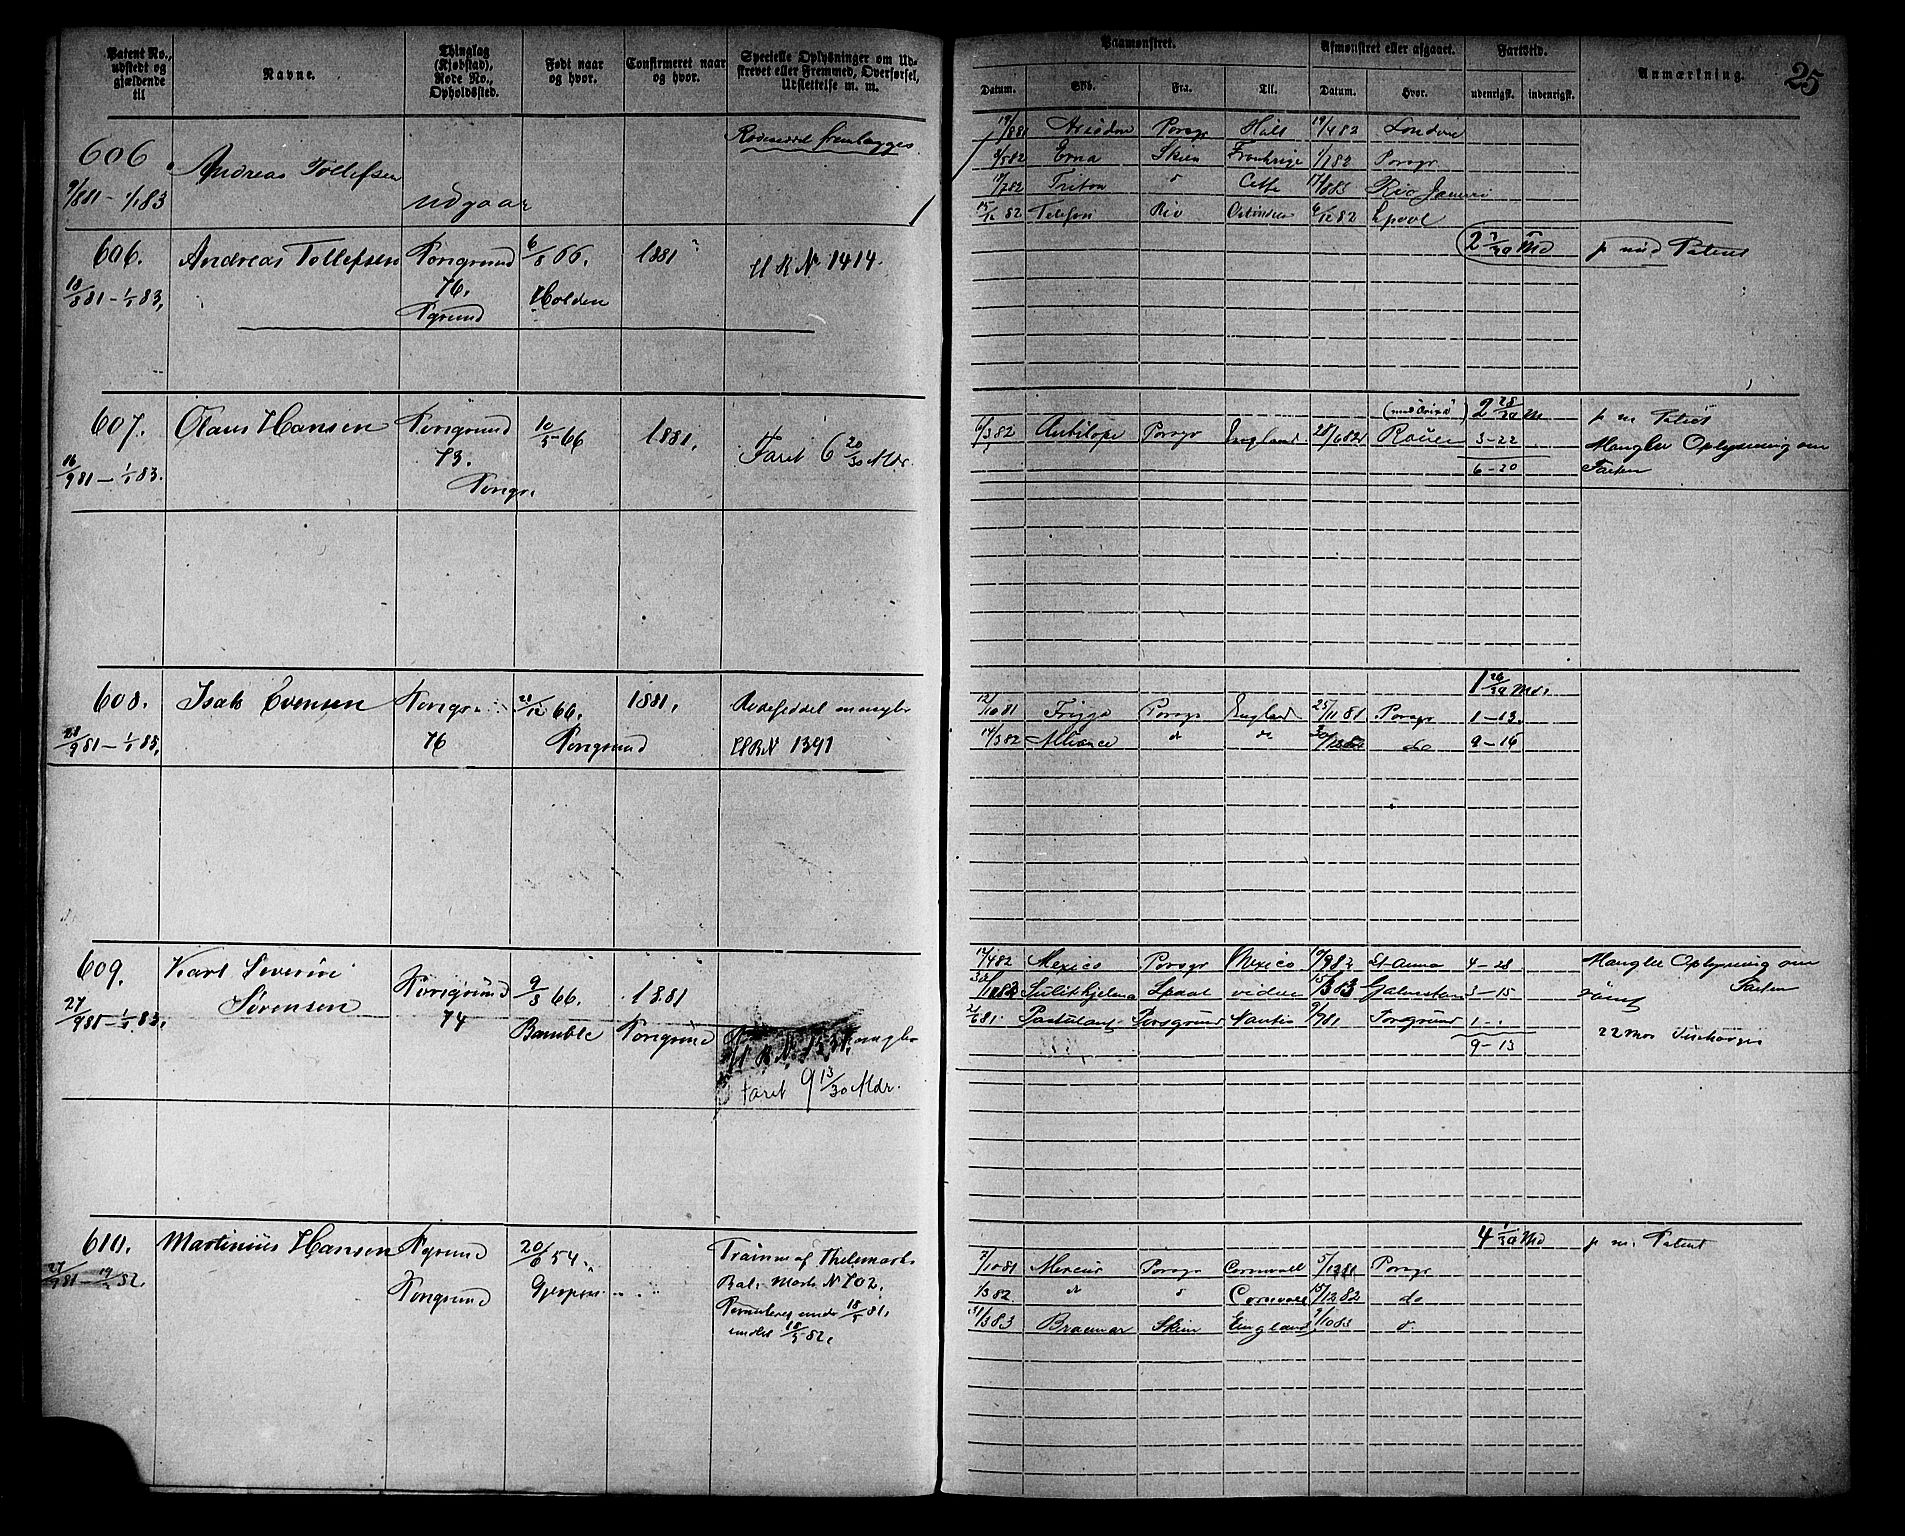 Patent No., udstedt og gjældende til
Navne.
Thinglag (Kjøbstad), Rode No., Opholdssted.
Født naar og hvor.
Confirmeret naar og hvor.
Specielle Oplysninger om Udskrevet eller Fremmed, Overførsel, Udslettelse m. m.
606
9/881 - 1/183
Andreas Tollefsen
udgaar
Rodeseddel fremlægges
606.
18/881 - 1/183,
Andreas Tollefsen
Porsgrund
76.
Pgrund
6/8 66.
Holden
1881
U R N 1414.
607.
16/981 - 1/183.
Olaus Hansen
Porsgrund
73.
Porsgr.
10/5 66
1881,
Faret 6 20/30 Mdr.
608.
28/981 - 1/183,
Isak Evensen
Porsgr.
76
28/12 66.
Porsgrund
1881,
Rodeseddel mangler
URN 1391
609.
27/981 - 1/183,
Karl Severin
Sørensen
Porsgrund
74
9/3 66.
Bamble
1881
Porsgrund
mangler
U R N. 1231.
Faret 9 13/30 Mdr.
610.
27/981 - 19/5 82.
Martinius Hansen
Pgrund
Porsgrund
20/6 54.
Gjerpen
Trainm af Thelemarks
Bat. Mark N 702.
Permitteres under 18/5 81,
endes 18/5 82.
Paamønstret.
Afmønstret eller afgaaet.
Fartstid.
Anmærkning.
25
Datum.
Skib.
Fra.
Til.
Datum.
Hvor.
udenrigsk.
indenrigsk.
19/881 Porsgr Hull 19/482 London
2/582 Erna Skien Frankrige 1/782 Porsgr
17/782 Triton d Cette Rio Janeiro
15/12 82 Telefon Rio Ostindien 6/12 82 Lpool
p med Patent
(med Brixø) 2 28/30 Md p m Patent
6/382 Antilope Porsgr England 28/682 3-22 Mangler Oplysning om
6-20 Farten
1 26/30 Mdr.
12/1081 Frigga Porsgr England 25/11 81 Porsgr 1-13.
14/382 Alliance d d do 9-16
17/482 Mexico Porsgr Mexico 10/982 St Anna 4-28 Mangler Oplysning om
Sulitelma Lpool videre Galveston 3-15 Farten
Postulant Porsgrund Nantes 2/981 Porsgrund 1-
9-13 22 Mdr
4 1/30 Md p m. Patent
7/1081 Mercur Porsgr Cornwall 5/1281 Porsgr
1/382 d d Cornwall 15/1282 do
31/383 Braemar Skien England 9/1083 d.